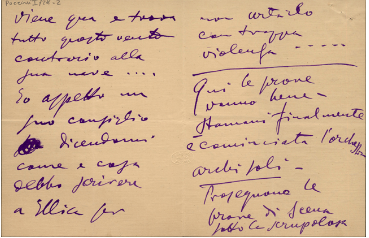 Puccini I/12a-2
viene qua e trova
tutto questo vento
contrario alla
sua neve ....
Io aspetto un
suo consiglio
dicendomi
come e cosa
debbo scrivere
a Ellica per
non urtarlo
con troppa
violenza ......
Qui le prove
vanno bene -
Stamani finalmente
è cominciata l'orchestra
archi soli -
Proseguono le
prove di scena
sotto la scrupolosa